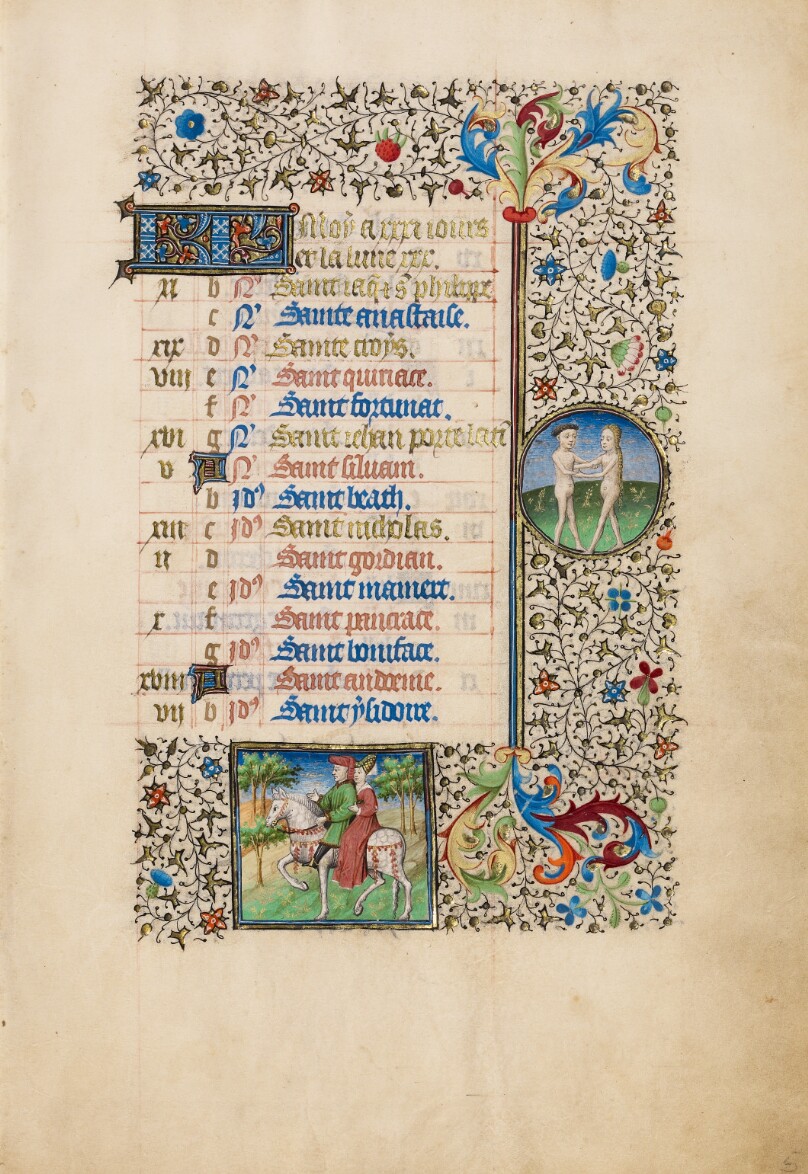 KL Moy a xxxi iours
et la lune xxx.
xi b N' Saint iaq̄ & s' phelippe
c N' Sainte anastaise.
xix d N' Sainte croys.
viii e N' Saint quiriace.
f N' Saint fortunat.
xvi g N' Saint iehan porte lati
v A N' Saint siluain.
b id' Saint beath.
xiii c id' Saint nicholas.
ii d Saint gordian.
e id' Saint mamert.
x f Saint pancrace.
g id' Saint boniface.
xviii A Saint
vii b id' Saint ysidoire.